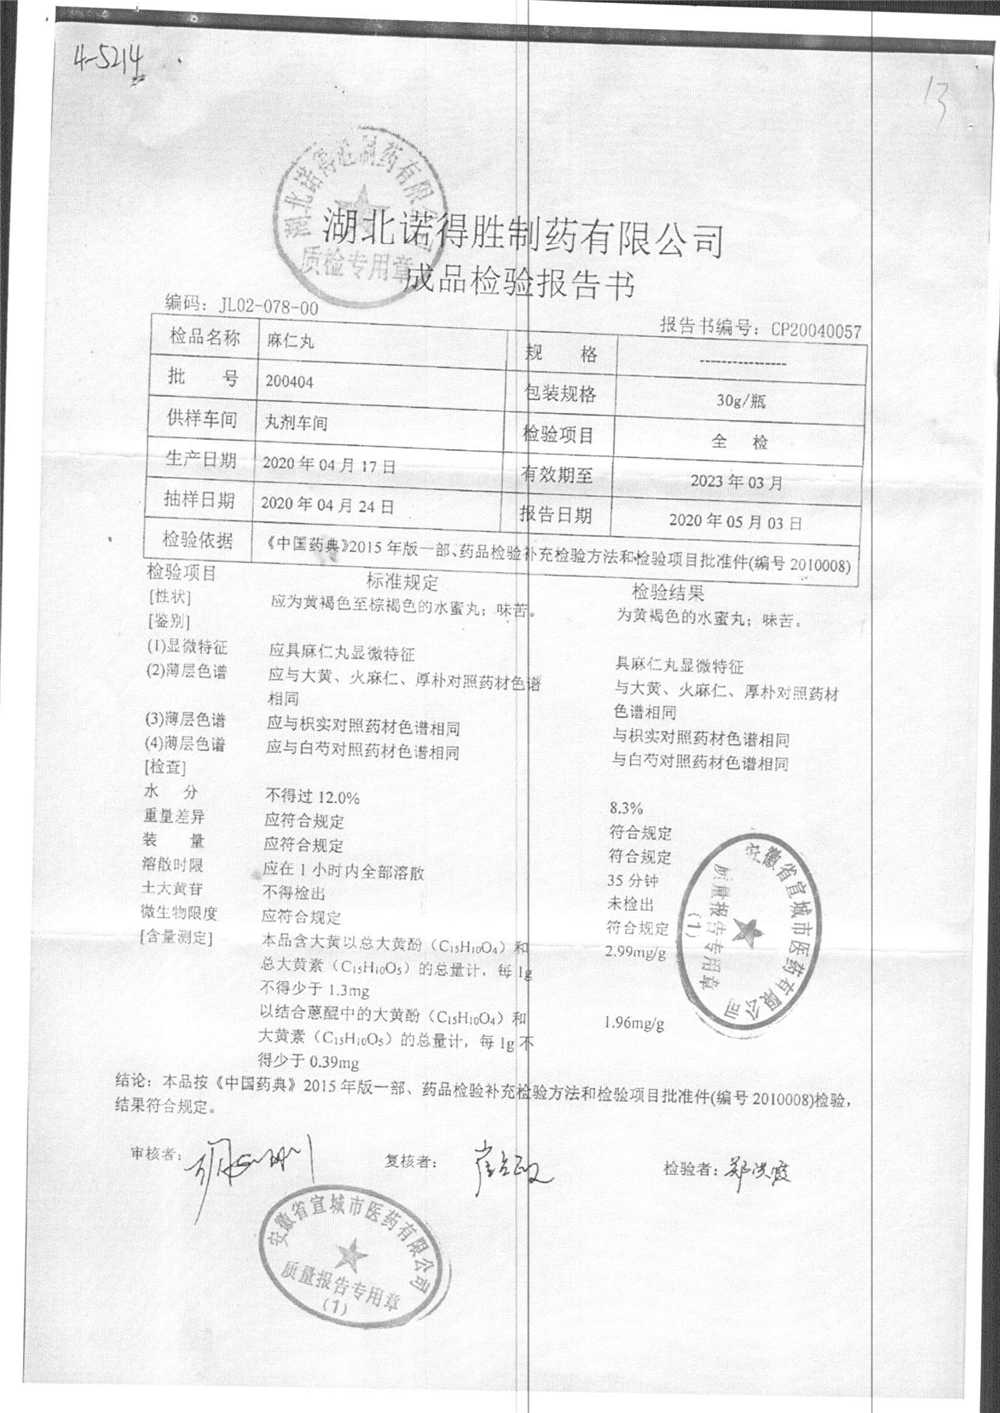 4-5214
13
湖北诺得胜制药有限公司
质检专用章
湖北诺得胜制药有限公司
成品检验报告书
编码：JL02-078-00
报告书编号：CP20040057
检品名称 麻仁丸 规 格 ----------------
批 号 200404 包装规格 30g/瓶
供样车间 丸剂车间 检验项目 全 检
生产日期 2020 年 04 月 17 日 有效期至 2023 年 03 月
抽样日期 2020 年 04 月 24 日 报告日期 2020 年 05 月 03 日
检验依据 《中国药典》2015 年版一部、药品检验补充检验方法和检验项目批准件(编号 2010008)
检验项目 标准规定 检验结果
[性状] 应为黄褐色至棕褐色的水蜜丸；味苦。 为黄褐色的水蜜丸；味苦。
[鉴别]
(1)显微特征 应具麻仁丸显微特征 具麻仁丸显微特征
(2)薄层色谱 应与大黄、火麻仁、厚朴对照药材色谱 与大黄、火麻仁、厚朴对照药材
相同 色谱相同
(3)薄层色谱 应与枳实对照药材色谱相同 与枳实对照药材色谱相同
(4)薄层色谱 应与白芍对照药材色谱相同 与白芍对照药材色谱相同
[检查]
水 分 不得过 12.0% 8.3%
重量差异 应符合规定 符合规定
装 量 应符合规定 符合规定
溶散时限 应在 1 小时内全部溶散 35 分钟
土大黄苷 不得检出 未检出
微生物限度 应符合规定 符合规定
[含量测定] 本品含大黄以总大黄酚（C₁₅H₁₀O₄）和 2.99mg/g
总大黄素（C₁₅H₁₀O₅）的总量计，每 1g
不得少于 1.3mg
以结合蒽醌中的大黄酚（C₁₅H₁₀O₄）和 1.96mg/g
大黄素（C₁₅H₁₀O₅）的总量计，每 1g 不
得少于 0.39mg
安徽省宣城市医药有限公司
质量报告专用章
(1)
结论：本品按《中国药典》2015 年版一部、药品检验补充检验方法和检验项目批准件(编号 2010008)检验，
结果符合规定。
审核者： 复核者： 检验者：郑洪霞
安徽省宣城市医药有限公司
质量报告专用章
(1)